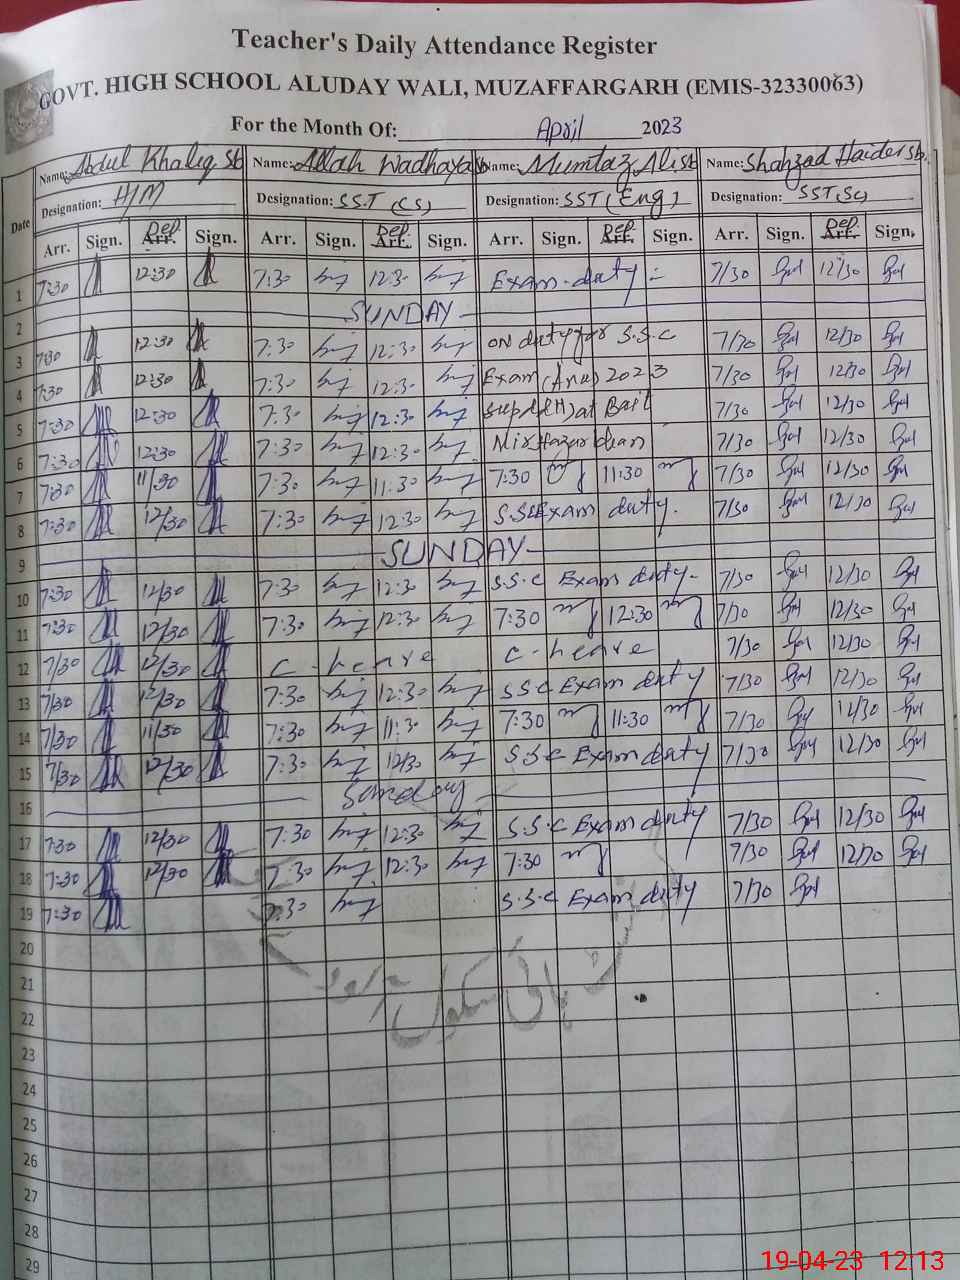 Teacher's Daily Attendance Register
GOVT. HIGH SCHOOL ALUDAY WALI, MUZAFFARGARH (EMIS-32330063)
For the Month Of: April 2023
Date Name: Abdul Khaliq Sb Name: Allah Wadhaya Sb Name: Mumtaz Ali Sb Name: Shahzad Haider Sb.
Designation: H/M Designation: SS.T (CS) Designation: SST (Eng) Designation: SST(Sc)
Arr. Sign. Dep. Arr. Sign. Arr. Sign. Dep. Arr. Sign. Arr. Sign. Dep. Arr. Sign. Arr. Sign. Dep. Arr. Sign.
1 7:30 12:30 7:30 12:30 Exam-duty :- 7/30 12/30
2 SUNDAY
3 7:30 12:30 7:30 12:30 ON duty for S.S.C 7/30 12/30
4 7:30 12:30 7:30 12:30 Exam (Anu) 2023 7/30 12/30
5 7:30 12:30 7:30 12:30 at Bait 7/30 12/30
6 7:30 12:30 7:30 12:30 Mir Hazar 7/30 12/30
7 7:30 11/30 7:30 11:30 7:30 11:30 7/30 12/30
8 7:30 12/30 7:30 12:30 S.SC Exam duty. 7/30 12/30
9 SUNDAY
10 7:30 12/30 7:30 12:30 S.S.C Exam duty. 7/30 12/30
11 7:30 12/30 7:30 12:30 7:30 12:30 7/30 12/30
12 7/30 12/30 C-leave C-leave 7/30 12/30
13 7/30 12/30 7:30 12:30 SSC Exam duty 7/30 12/30
14 7/30 11/30 7:30 11:30 7:30 11:30 7/30 12/30
15 7/30 12/30 7:30 12/30 S.S.C Exam duty 7/30 12/30
16 Sunday
17 7:30 12/30 7:30 12:30 S.S.C Exam duty 7/30 12/30
18 7:30 12/30 7:30 12:30 7:30 7/30 12/30
19 7:30 7:30 S.S.C Exam duty 7/30
20
21
22
23
24
25
26
27
28
29
19-04-23 12:13